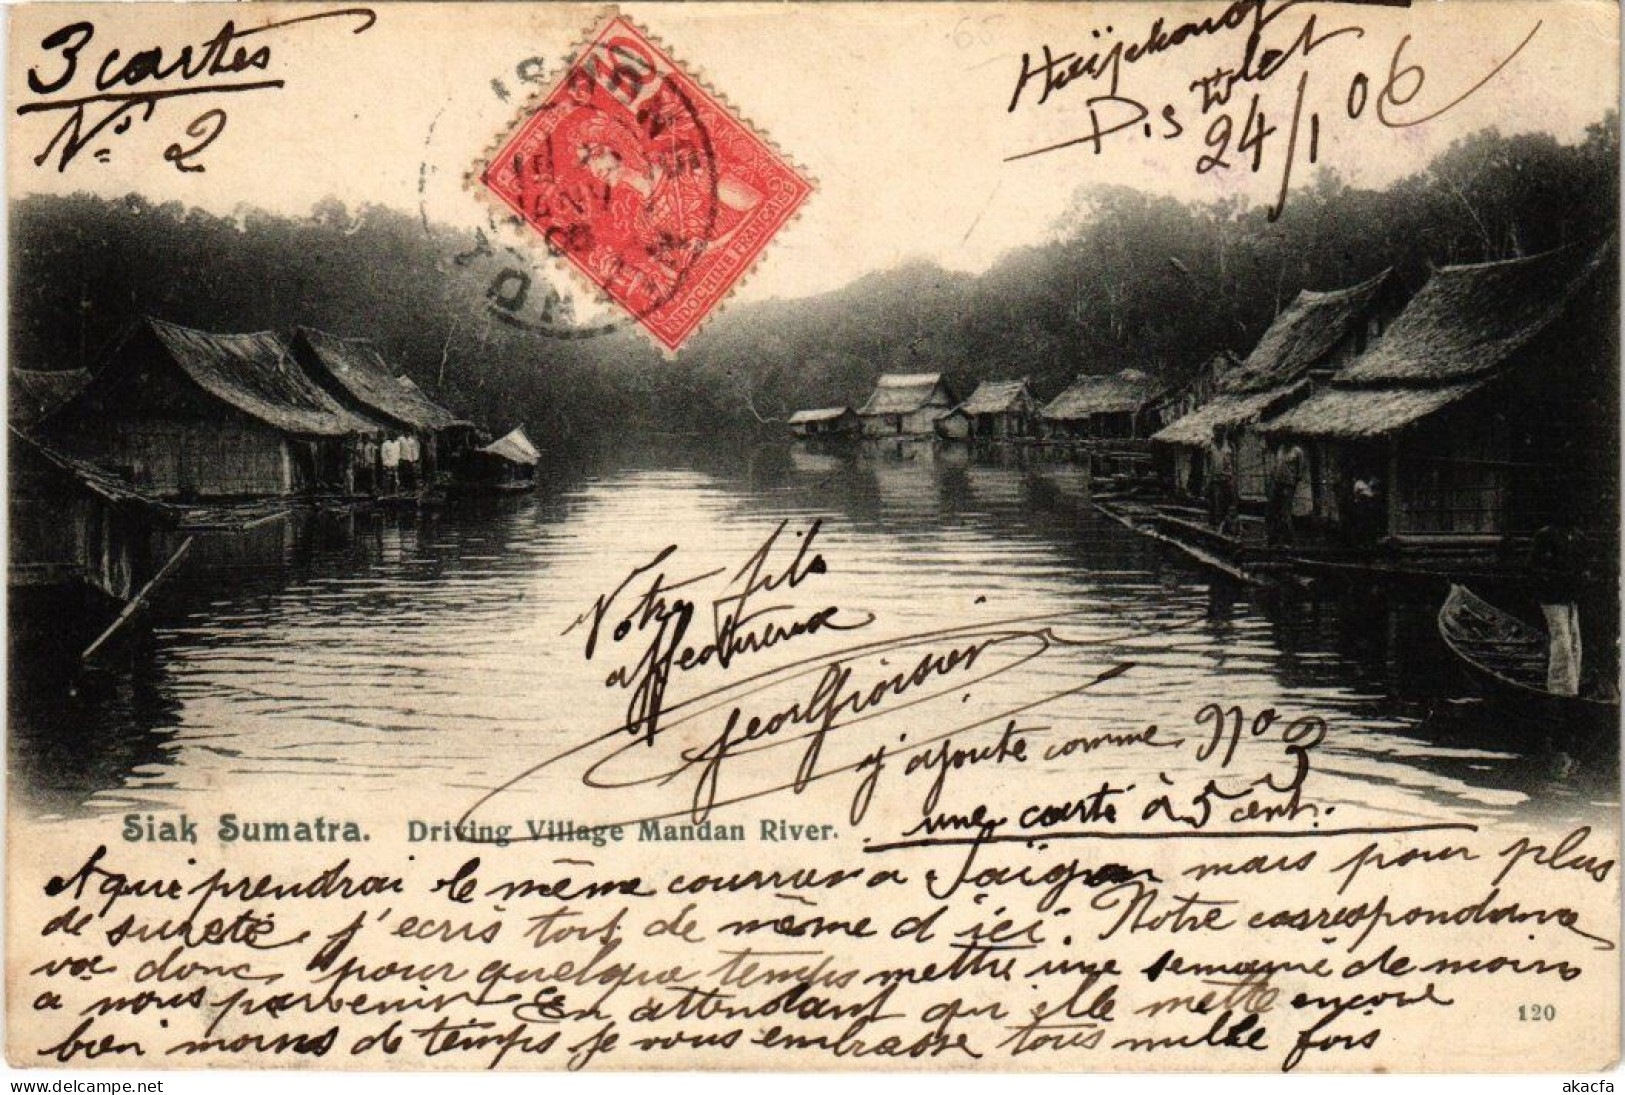 3 cartes
No 2
24/1 06
INDOCHINE FRANÇAISE
Votre fils
affectueux
j'ajoute comme No 3
une carte à 5 cent.
Siak Sumatra. Driving Village Mandan River.
et qui prendrai le même courrier a Saïgon mais pour plus
de sureté, j'ecris tout de même d'ici. Notre correspondance
va donc, pour quelque temps mettre une semaine de moins
a nous parvenir En attendant qu'elle mette encore
bien moins de temps je vous embrasse tous mille fois
120
akacfa-delcampe.net
akacfa